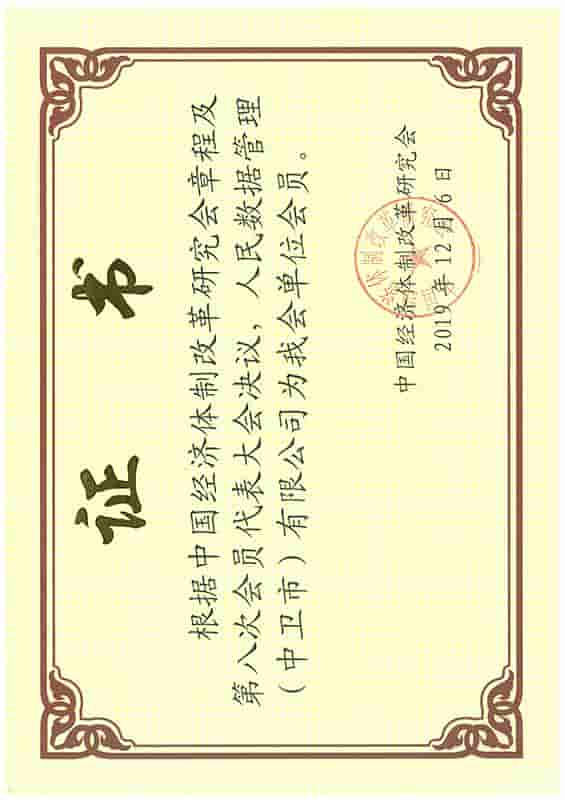 证书
根据中国经济体制改革研究会章程及
第八次会员代表大会决议，人民数据管理
（中卫市）有限公司为我会单位会员。
中国经济体制改革研究会
2019年12月6日